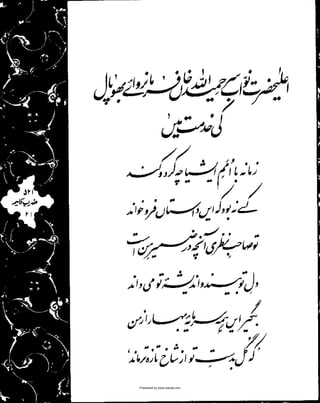 اعلیحضرت نواب سر حمید اللہ خاں فرمانروائے بھوپال
کی خدمت میں!
زمانہ با اممِ ایشیا چہ کرد و کند
کسے نہ بود کہ ایں داستاں فرو خواند
تو صاحبِ نظری آنچہ در ضمیرِ من است
دلِ تو بیند و اندیشۂ تو می داند
بگیر ایں ہمہ سرمایۂ بہار از من
'کہ گل بدستِ تو از شاخ تازہ تر ماند'
۵۲۱
ضربِ کلیم
Presented by www.iqbalo.com